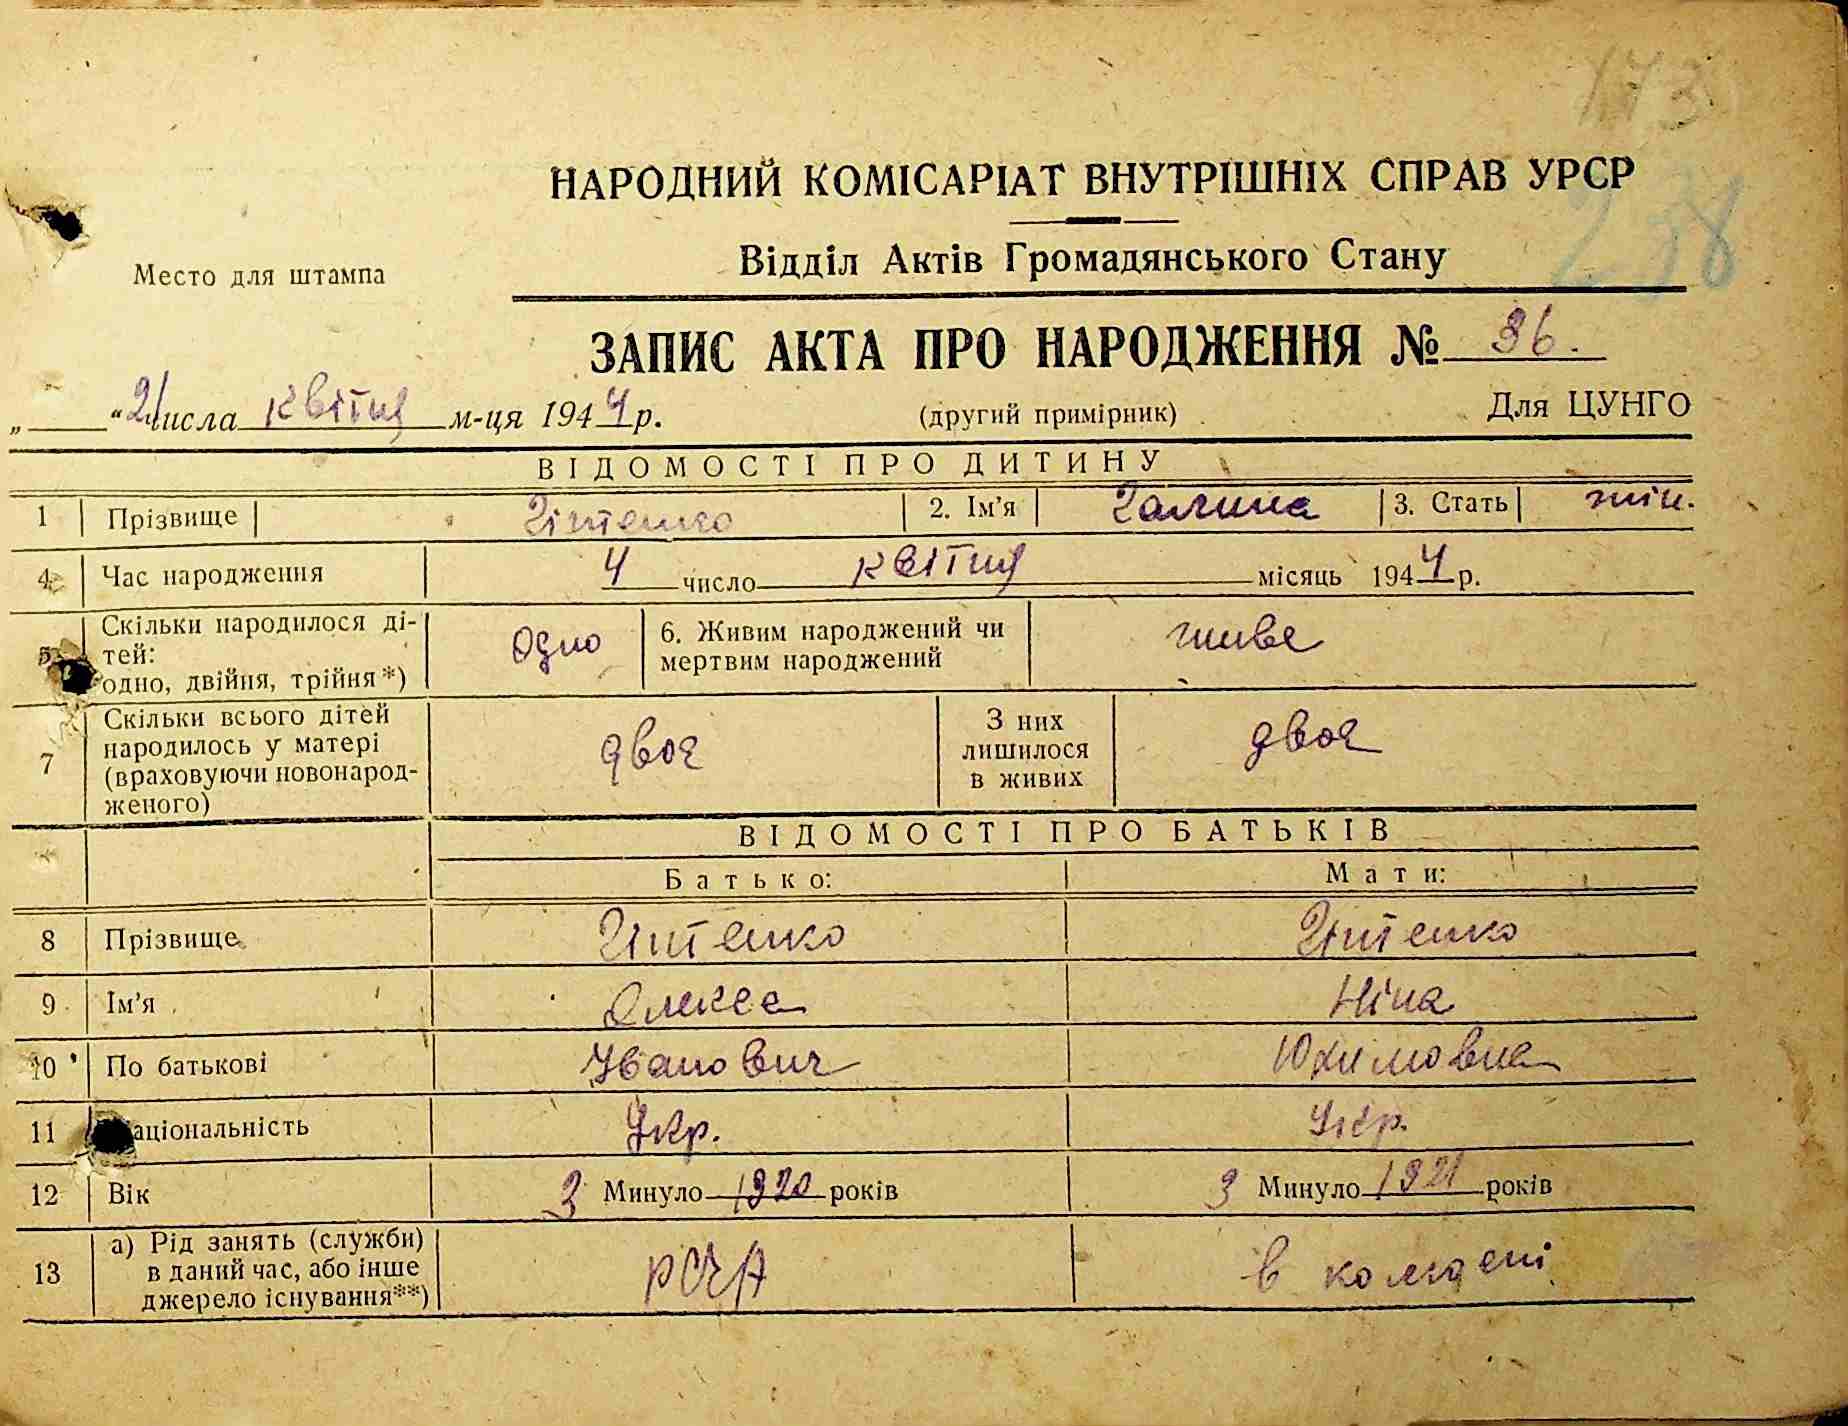 173
НАРОДНИЙ КОМІСАРІАТ ВНУТРІШНІХ СПРАВ УРСР
238
Відділ Актів Громадянського Стану
Место для штампа
ЗАПИС АКТА ПРО НАРОДЖЕННЯ № 36.
„ “ 21 числа квітня м-ця 1944 р. (другий примірник) Для ЦУНГО
ВІДОМОСТІ ПРО ДИТИНУ
1 Прізвище 2. Ім'я Галина 3. Стать жін.
4 Час народження 4 число квітня місяць 1944 р.
5 Скільки народилося ді-
тей:
одно, двійня, трійня*)
одно
6. Живим народжений чи
мертвим народжений
живе
7 Скільки всього дітей
народилось у матері
(враховуючи новонарод-
женого)
двоє
З них
лишилося
в живих
двоє
ВІДОМОСТІ ПРО БАТЬКІВ
Батько: Мати:
8 Прізвище
9 Ім'я Олексе Ніна
10 По батькові Іванович Юхимовна
11 аціональність Укр. Укр.
12 Вік З Минуло 1920 років З Минуло 1921 років
13 а) Рід занять (служби)
в даний час, або інше
джерело існування**)
РСЧА в колгоспі